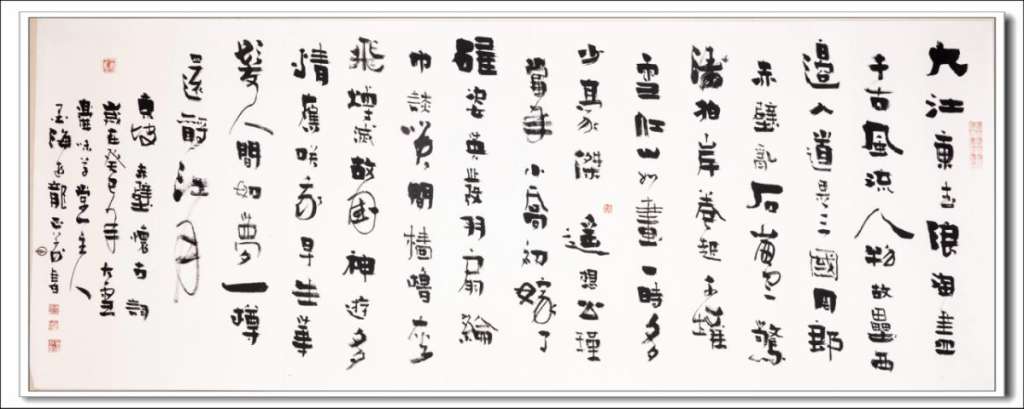 大江東去浪淘盡
千古風流人物故壘西
邊人道是三國周郎
赤壁亂石崩雲驚
濤拍岸卷起千堆
雪江山如畫一時多
少豪傑 遙想公瑾
當年小喬初嫁了
雄姿英發羽扇綸
巾談笑間檣櫓灰
飛煙滅故國神遊多
情應笑我早生華
髮人間如夢一樽
還酹江月
東坡赤壁懷古詞
歲在癸巳年大雪
草堂主人
海 龍 書